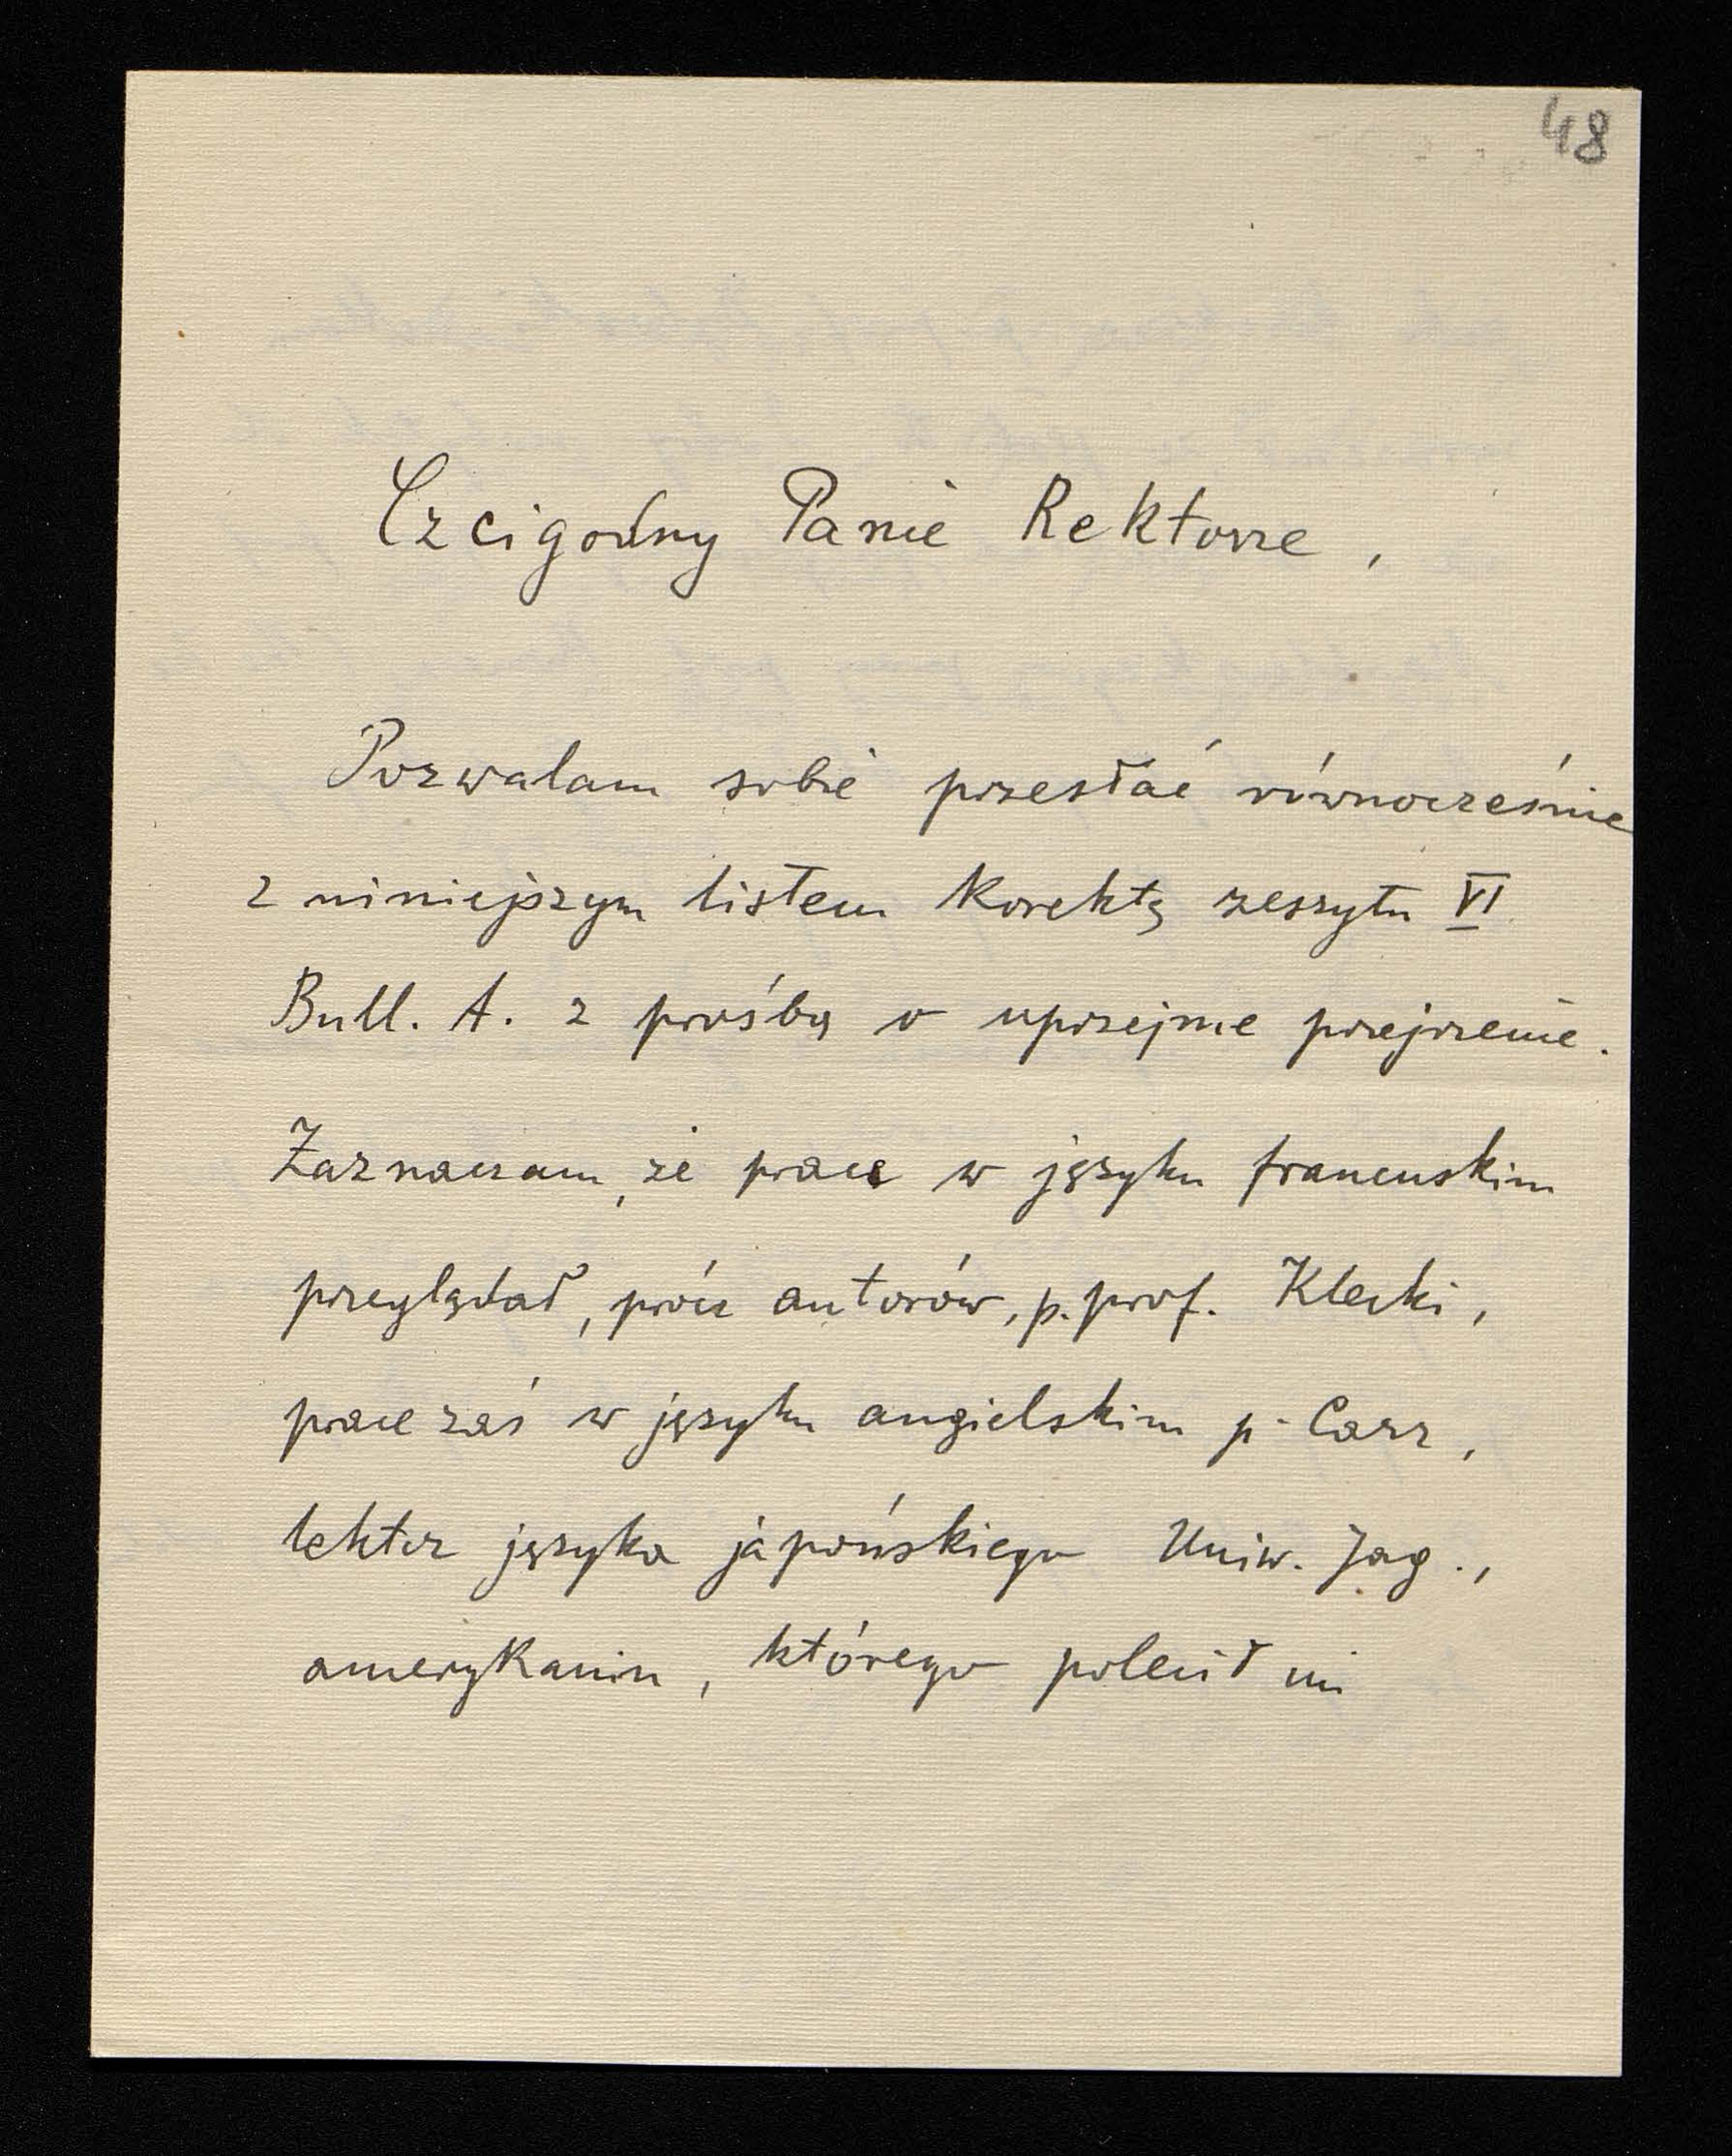 48
Czcigodny Panie Rektorze,
Pozwalam sobie przesłać równocześnie
z niniejszym listem korektę zeszytu VI
Bull. A. z prośbą o uprzejme przejrzenie.
Zaznaczam, że prace w języku francuskim
przeglądał, prócz autorów, p. prof. Klecki,
prace zaś w języku angielskim p. Carr,
lektor języka japońskiego Uniw. Jag.,
amerykanin, którego polecił mi